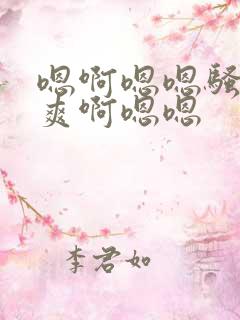 嗯啊嗯嗯骚
爽啊嗯嗯
李君如